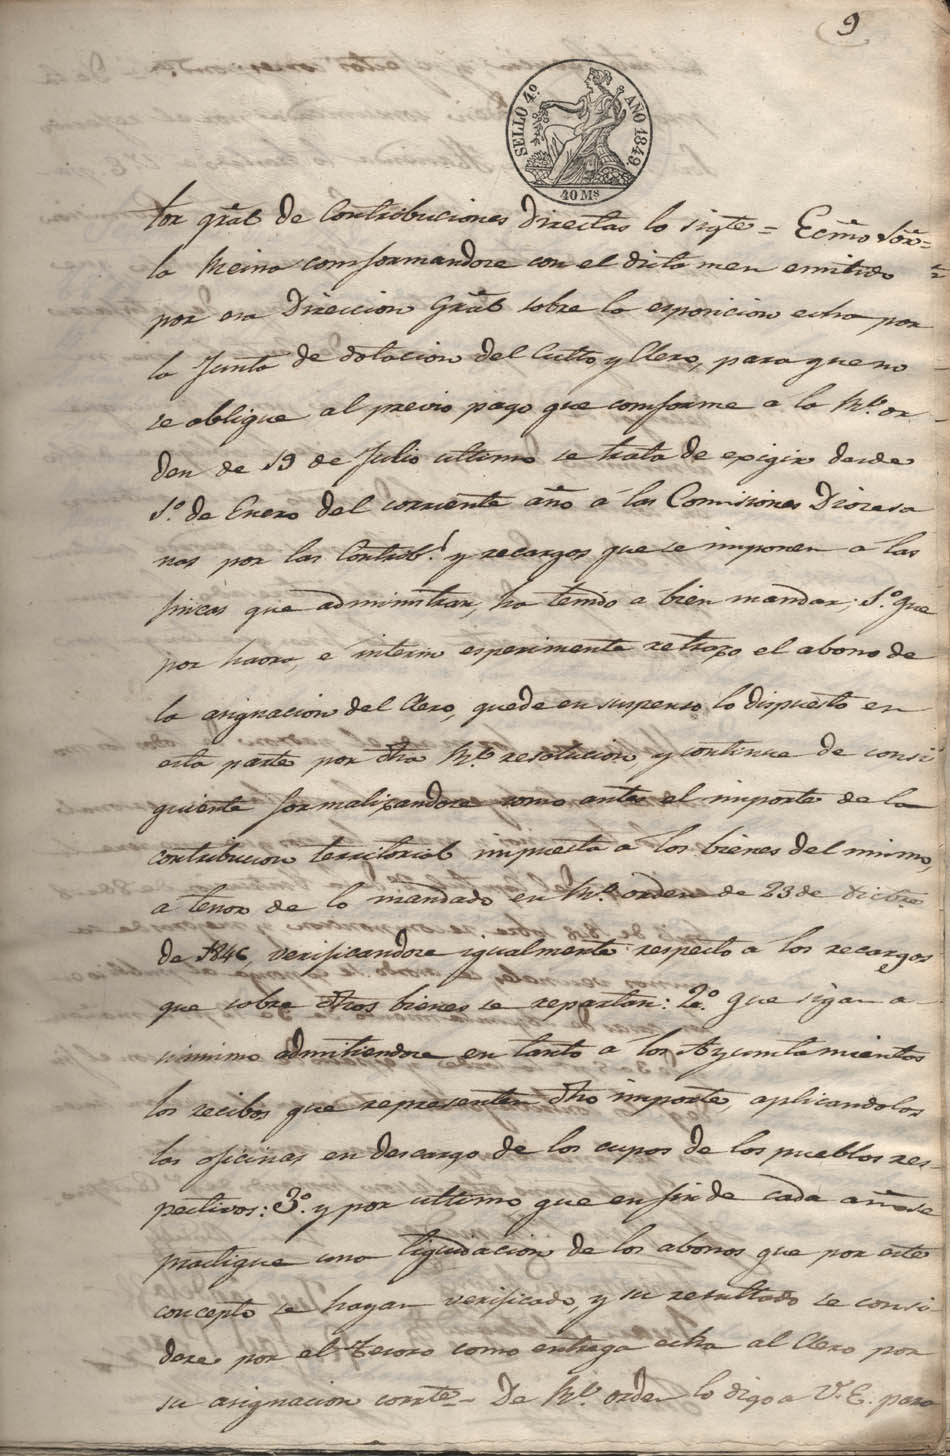 9
SELLO 4º. AÑO 1849.
40 Ms
tor gral de Contribuciones Directas lo sigte = Ecmo Sor =
la Reina comformandose con el dictamen emitido
por esa Direccion Gral sobre la esposicion echa por
la Junta de dotacion del Culto y Clero, para que no
se obligue al previo pago que comforme a la Rl. or
den de 19 de Julio ultimo se trata de exigir desde
1.º de Enero del corriente año a las Comisiones Diocesa
nas por las Contribs. y recargos que se imponen a las
fincas que administran, ha tenido a bien mandar: 1.º que
por haora, e interin esperimente retrazo el abono de
la asignacion del Clero, quede en suspenso lo dispuesto en
esta parte por dha Rl. resolucion, y continue de consi
guiente formalizandose como antes el importe de la
contribucion territorial impuesta a los bienes del mismo,
a tenor de lo mandado en Rl. orden de 23 de Dicbre.
de 1846, verificandose igualmente respecto a los recargos
que sobre dhos bienes se repartan: 2.º que sigan a
simismo admitiendose en tanto a los Ayuntamientos
los recibos que representen dho importe, aplicandolos
las oficinas en descargo de los cupos de los pueblos res-
pectivos: 3.º y por ultimo que en fin de cada año se
practique una liquidacion de los abonos que por este
concepto se hayan verificado, y su resultado se consi
dere por el Tesoro como entrega echa al Clero por
su asignacion corrte = De Rl. orden lo digo a V. E. para